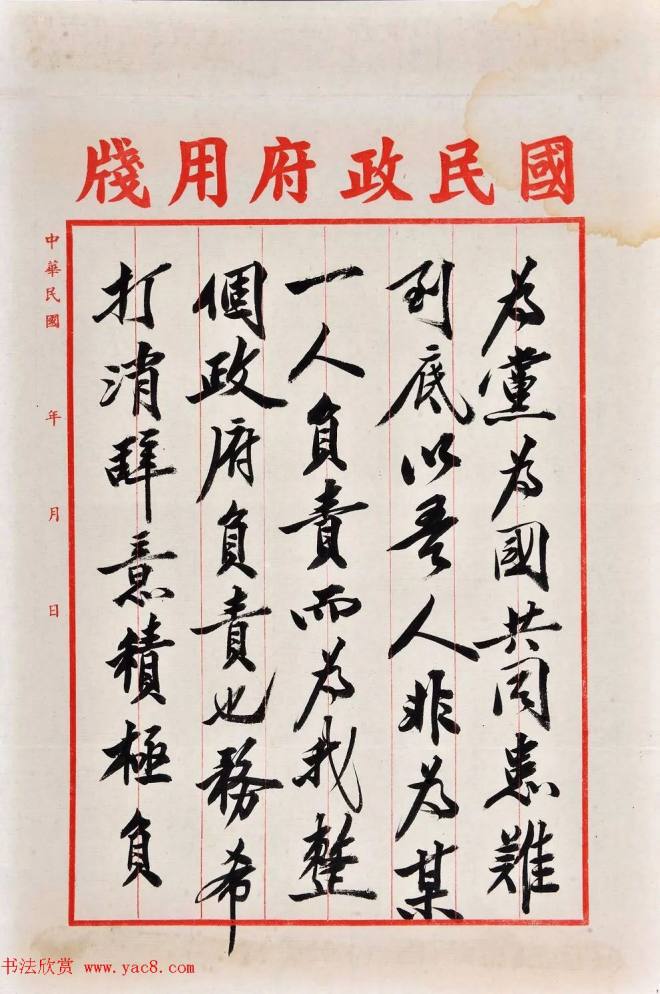 國民政府用牋
為黨為國共同患難
到底以吾人非為某
一人負責而為我整
個政府負責也務希
打消辞意積極負
中華民國 年 月 日
书法欣赏 www.yac8.com